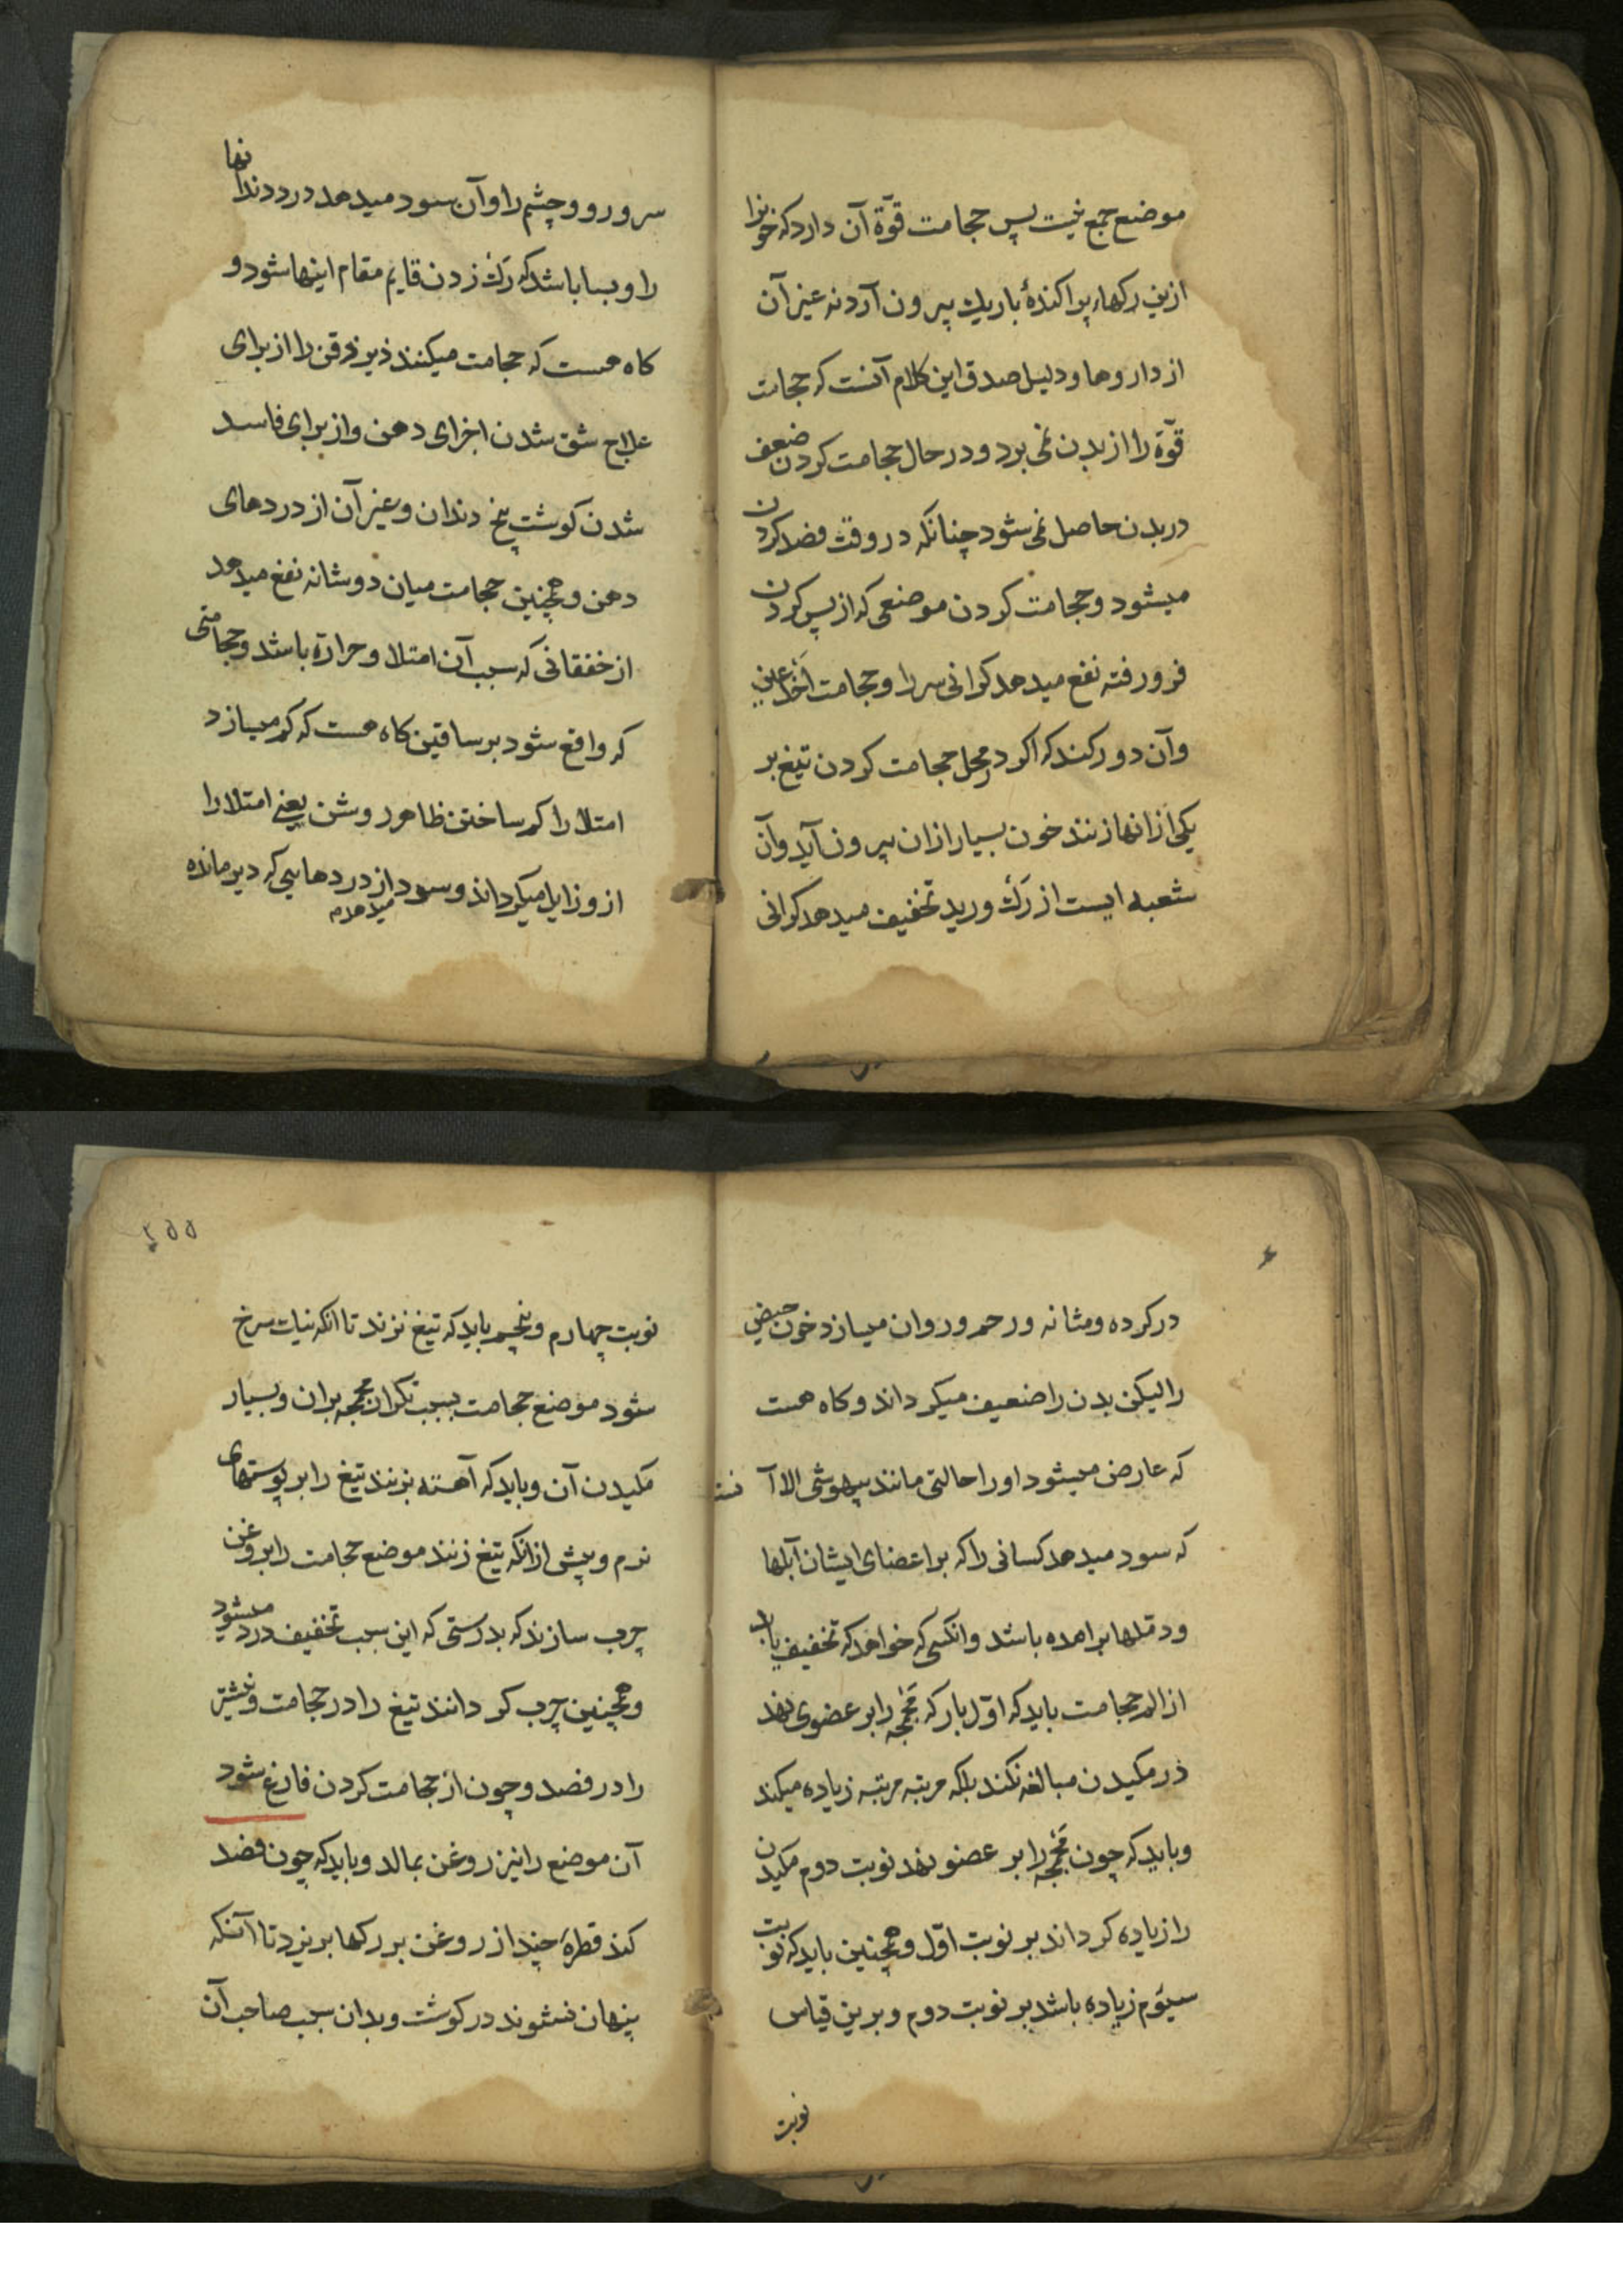 موضع جمع نیست پس حجامت قوّة آن دارد که خونرا
ازین رکهاء پراکندهٔ باریك بیرون آرد نه غیر آن
از داروها و دلیل صدق این کلام آنست که حجامت
قوّة را از بدن نمی برد و در حال حجامت کردن ضعف
در بدن حاصل نمی شود چنانکه در وقت فصد کردن
میشود و حجامت کردن موضعی که از پس کردن
فرو رفته نفع میدهد کرانی سر را و حجامت اخدعین
وآن دو رکند که اکر در محل حجامت کردن تیغ بر
یکی از انها زنند خون بسیار ازان بیرون آید وآن
شعبه ایست از رك ورید تخفیف میدهد کرانی
سر و رو و چشم را وآن سود میدهد درد دندانها
را و بسا باشد که رك زدن قایم مقام اینها شود و
کاه هست که حجامت میکنند زیر ذقن را از برای
علاج شق شدن اجزای دهن و از برای فاسد
شدن کوشت بیخ دندان و غیر آن از دردهای
دهن و همچنین حجامت میان دو شانه نفع میدهد
از خفقانی که سبب آن امتلا و حرارة باشد و حجامتی
که واقع شود بر ساقین کاه هست که کم میسازد
امتلا را کم ساختن ظاهر روشن یعنی امتلا را
ازو زایل میکرداند و سود میدهد از دردهایی که دیر مانده
در کرده و مثانه و رحم و روان میسازد خون حیض
را لیکن بدن را ضعیف میکرداند و کاه هست
که عارض میشود اورا حالتی مانند بیهوشی الا آنست
که سود میدهد کسانی را که بر اعضای ایشان آبلها
و دملها برامده باشد و انکسی که خواهد که تخفیف یابد
از الم حجامت باید که اوّل بار که محجمه را بر عضوی نهد
در مکیدن مبالغه نکند بلکه مرتبه مرتبه زیاده میکند
و باید که چون محجمه را بر عضو نهد نوبت دوم مکیدن
را زیاده کرداند بر نوبت اوّل و همچنین باید که نوبت
سیّوم زیاده باشد بر نوبت دوم و برین قیاس
نوبت
۲۵۵
نوبت چهارم و پنجم باید که تیغ نزند تا انکه نیات سرخ
شود موضع حجامت بسبب تکرار محجمه بران و بسیار
مکیدن آن و باید که آهسته بزنند تیغ را بر پوستهای
نرم و پیش ازانکه تیغ زنند موضع حجامت را بروغن
چرب سازند که بدرستی که این سبب تخفیف درد میشود
و همچنین چرب کردانند تیغ را در حجامت و نیشتر
را در فصد و چون از حجامت کردن فارغ شود
آن موضع را نیز روغن بمالد و باید که چون فصد
کند قطرهٔ چند از روغن بر رکها بریزد تا آنکه
پنهان نشوند در کوشت و بدان سبب صاحب آن